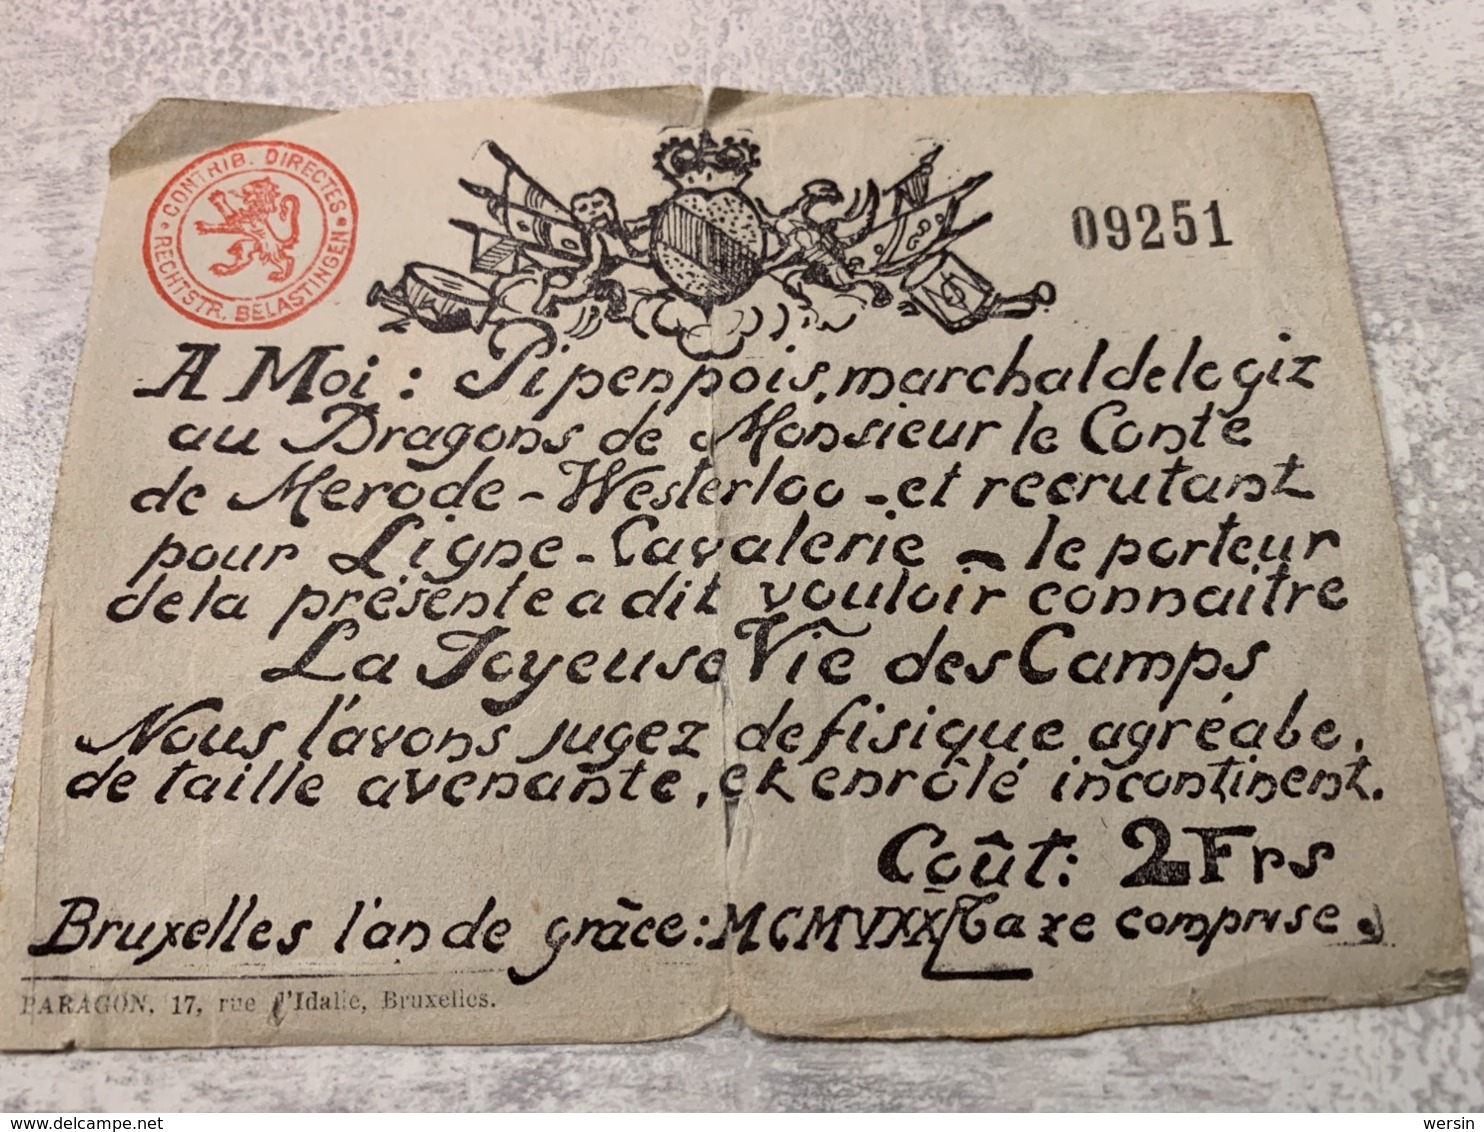 CONTRIB. DIRECTES
RECHTSTR. BELASTINGEN
09251
A Moi : Pipenpois, marchal de logiz
au Dragons de Monsieur le Conte
de Merode-Westerloo - et recrutant
pour Ligne-Cavalerie - le porteur
de la présente a dit vouloir connaitre
La Joyeuse Vie des Camps
Nous l'avons jugez de fisique agréabe,
de taille avenante, et enrôlé incontinent.
Coût: 2 Frs
Bruxelles l'an de grâce: MCMVXX Taxe comprise.
PARAGON, 17, rue d'Idalie, Bruxelles.
delcampe.net
wersin